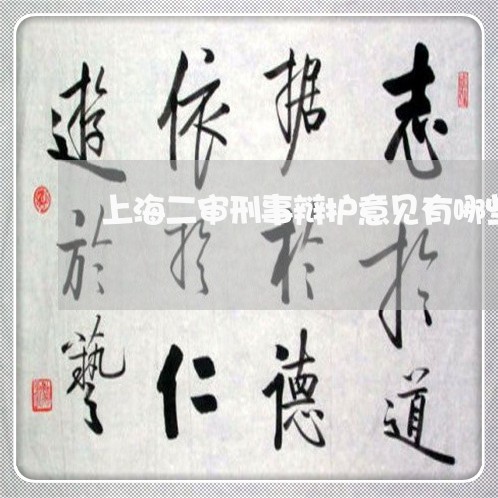 志於道
据於德
依於仁
遊於藝
上海二审刑事辩护意见有哪